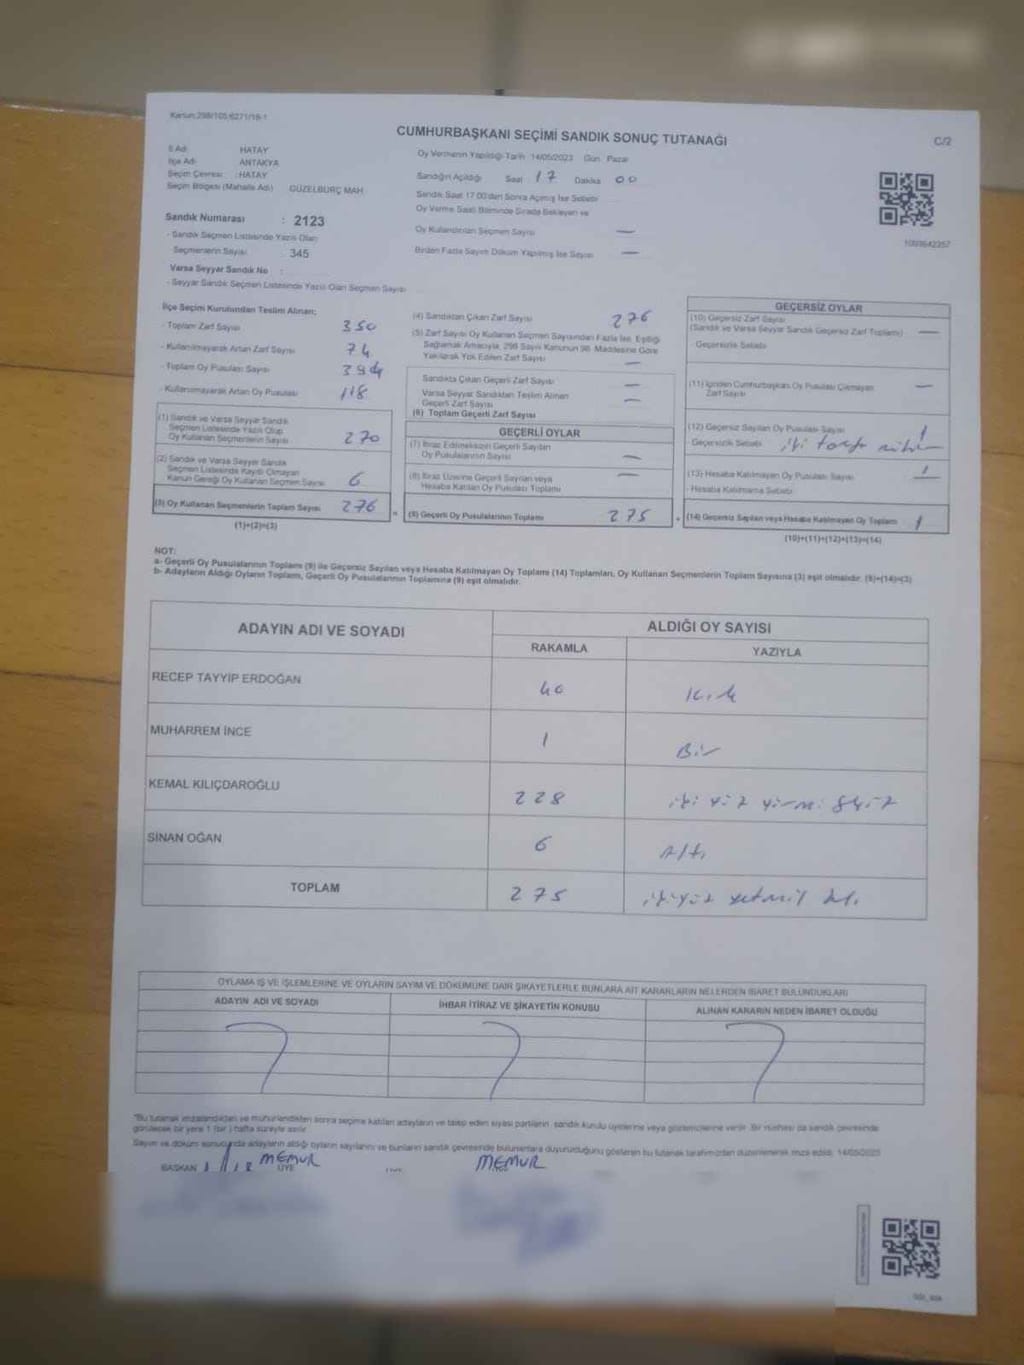 Kanun:298/105,6271/18-1
CUMHURBAŞKANI SEÇİMİ SANDIK SONUÇ TUTANAĞI
C/2
İl Adı HATAY
İlçe Adı ANTAKYA
Seçim Çevresi : HATAY
Seçim Bölgesi (Mahalle Adı) GÜZELBURÇ MAH
Oy Vermenin Yapıldığı Tarih 14/05/2023 Gün Pazar
Sandığın Açıldığı Saat 17 Dakika 00
Sandık Saat 17:00'den Sonra Açılmış İse Sebebi
Oy Verme Saati Bitiminde Sırada Bekleyen ve
Oy Kullandırılan Seçmen Sayısı —
Birden Fazla Sayım Döküm Yapılmış İse Sayısı —
Sandık Numarası : 2123
- Sandık Seçmen Listesinde Yazılı Olan
Seçmenlerin Sayısı 345
Varsa Seyyar Sandık No :
- Seyyar Sandık Seçmen Listesinde Yazılı Olan Seçmen Sayısı
İlçe Seçim Kurulundan Teslim Alınan;
- Toplam Zarf Sayısı 350
- Kullanılmayarak Artan Zarf Sayısı 74
- Toplam Oy Pusulası Sayısı 394
- Kullanılmayarak Artan Oy Pusulası 118
(1) Sandık ve Varsa Seyyar Sandık
Seçmen Listesinde Yazılı Olup
Oy Kullanan Seçmenlerin Sayısı 270
(2) Sandık ve Varsa Seyyar Sandık
Seçmen Listesinde Kayıtlı Olmayan
Kanun Gereği Oy Kullanan Seçmen Sayısı 6
(3) Oy Kullanan Seçmenlerin Toplam Sayısı 276
(1)+(2)=(3)
(4) Sandıktan Çıkan Zarf Sayısı 276
(5) Zarf Sayısı Oy Kullanan Seçmen Sayısından Fazla İse, Eşitliği
Sağlamak Amacıyla, 298 Sayılı Kanunun 98. Maddesine Göre
Yakılarak Yok Edilen Zarf Sayısı —
Sandıkta Çıkan Geçerli Zarf Sayısı —
Varsa Seyyar Sandıktan Teslim Alınan
Geçerli Zarf Sayısı —
(6) Toplam Geçerli Zarf Sayısı
GEÇERLİ OYLAR
(7) İtiraz Edilmeksizin Geçerli Sayılan
Oy Pusulalarının Sayısı —
(8) İtiraz Üzerine Geçerli Sayılan veya
Hesaba Katılan Oy Pusulası Toplamı —
(9) Geçerli Oy Pusulalarının Toplamı 275
GEÇERSİZ OYLAR
(10) Geçersiz Zarf Sayısı
(Sandık ve Varsa Seyyar Sandık Geçersiz Zarf Toplamı) —
- Geçersizlik Sebebi
(11) İçinden Cumhurbaşkanı Oy Pusulası Çıkmayan
Zarf Sayısı —
(12) Geçersiz Sayılan Oy Pusulası Sayısı 1
Geçersizlik Sebebi iki tarafa mühür
(13) Hesaba Katılmayan Oy Pusulası Sayısı
- Hesaba Katılmama Sebebi
(14) Geçersiz Sayılan veya Hesaba Katılmayan Oy Toplamı 1
(10)+(11)+(12)+(13)=(14)
NOT:
a- Geçerli Oy Pusulalarının Toplamı (9) ile Geçersiz Sayılan veya Hesaba Katılmayan Oy Toplamı (14) Toplamları, Oy Kullanan Seçmenlerin Toplam Sayısına (3) eşit olmalıdır. (9)+(14)=(3)
b- Adayların Aldığı Oyların Toplamı, Geçerli Oy Pusulalarının Toplamına (9) eşit olmalıdır.
ADAYIN ADI VE SOYADI ALDIĞI OY SAYISI
RAKAMLA YAZIYLA
RECEP TAYYİP ERDOĞAN 40 Kırk
MUHARREM İNCE 1 Bir
KEMAL KILIÇDAROĞLU 228 iki yüz yirmi sekiz
SİNAN OĞAN 6 Altı
TOPLAM 275 ikiyüz yetmiş
OYLAMA İŞ VE İŞLEMLERİNE VE OYLARIN SAYIM VE DÖKÜMÜNE DAİR ŞİKAYETLERLE BUNLARA AİT KARARLARIN NELERDEN İBARET BULUNDUKLARI
ADAYIN ADI VE SOYADI İHBAR İTİRAZ VE ŞİKAYETİN KONUSU ALINAN KARARIN NEDEN İBARET OLDUĞU
*Bu tutanak imzalandıktan ve mühürlendikten sonra seçime katılan adayların ve talep eden siyasi partilerin, sandık kurulu üyelerine veya gözlemcilerine verilir. Bir nüshası da sandık çevresinde
görülecek bir yere 1 (bir) hafta süreyle asılır.
Sayım ve döküm sonucunda adayların aldığı oyların sayılarını ve bunların sandık çevresinde bulunanlara duyurulduğunu gösteren bu tutanak tarafımızdan düzenlenerek imza edildi. 14/05/2023
BAŞKAN MEMUR ÜYE MEMUR